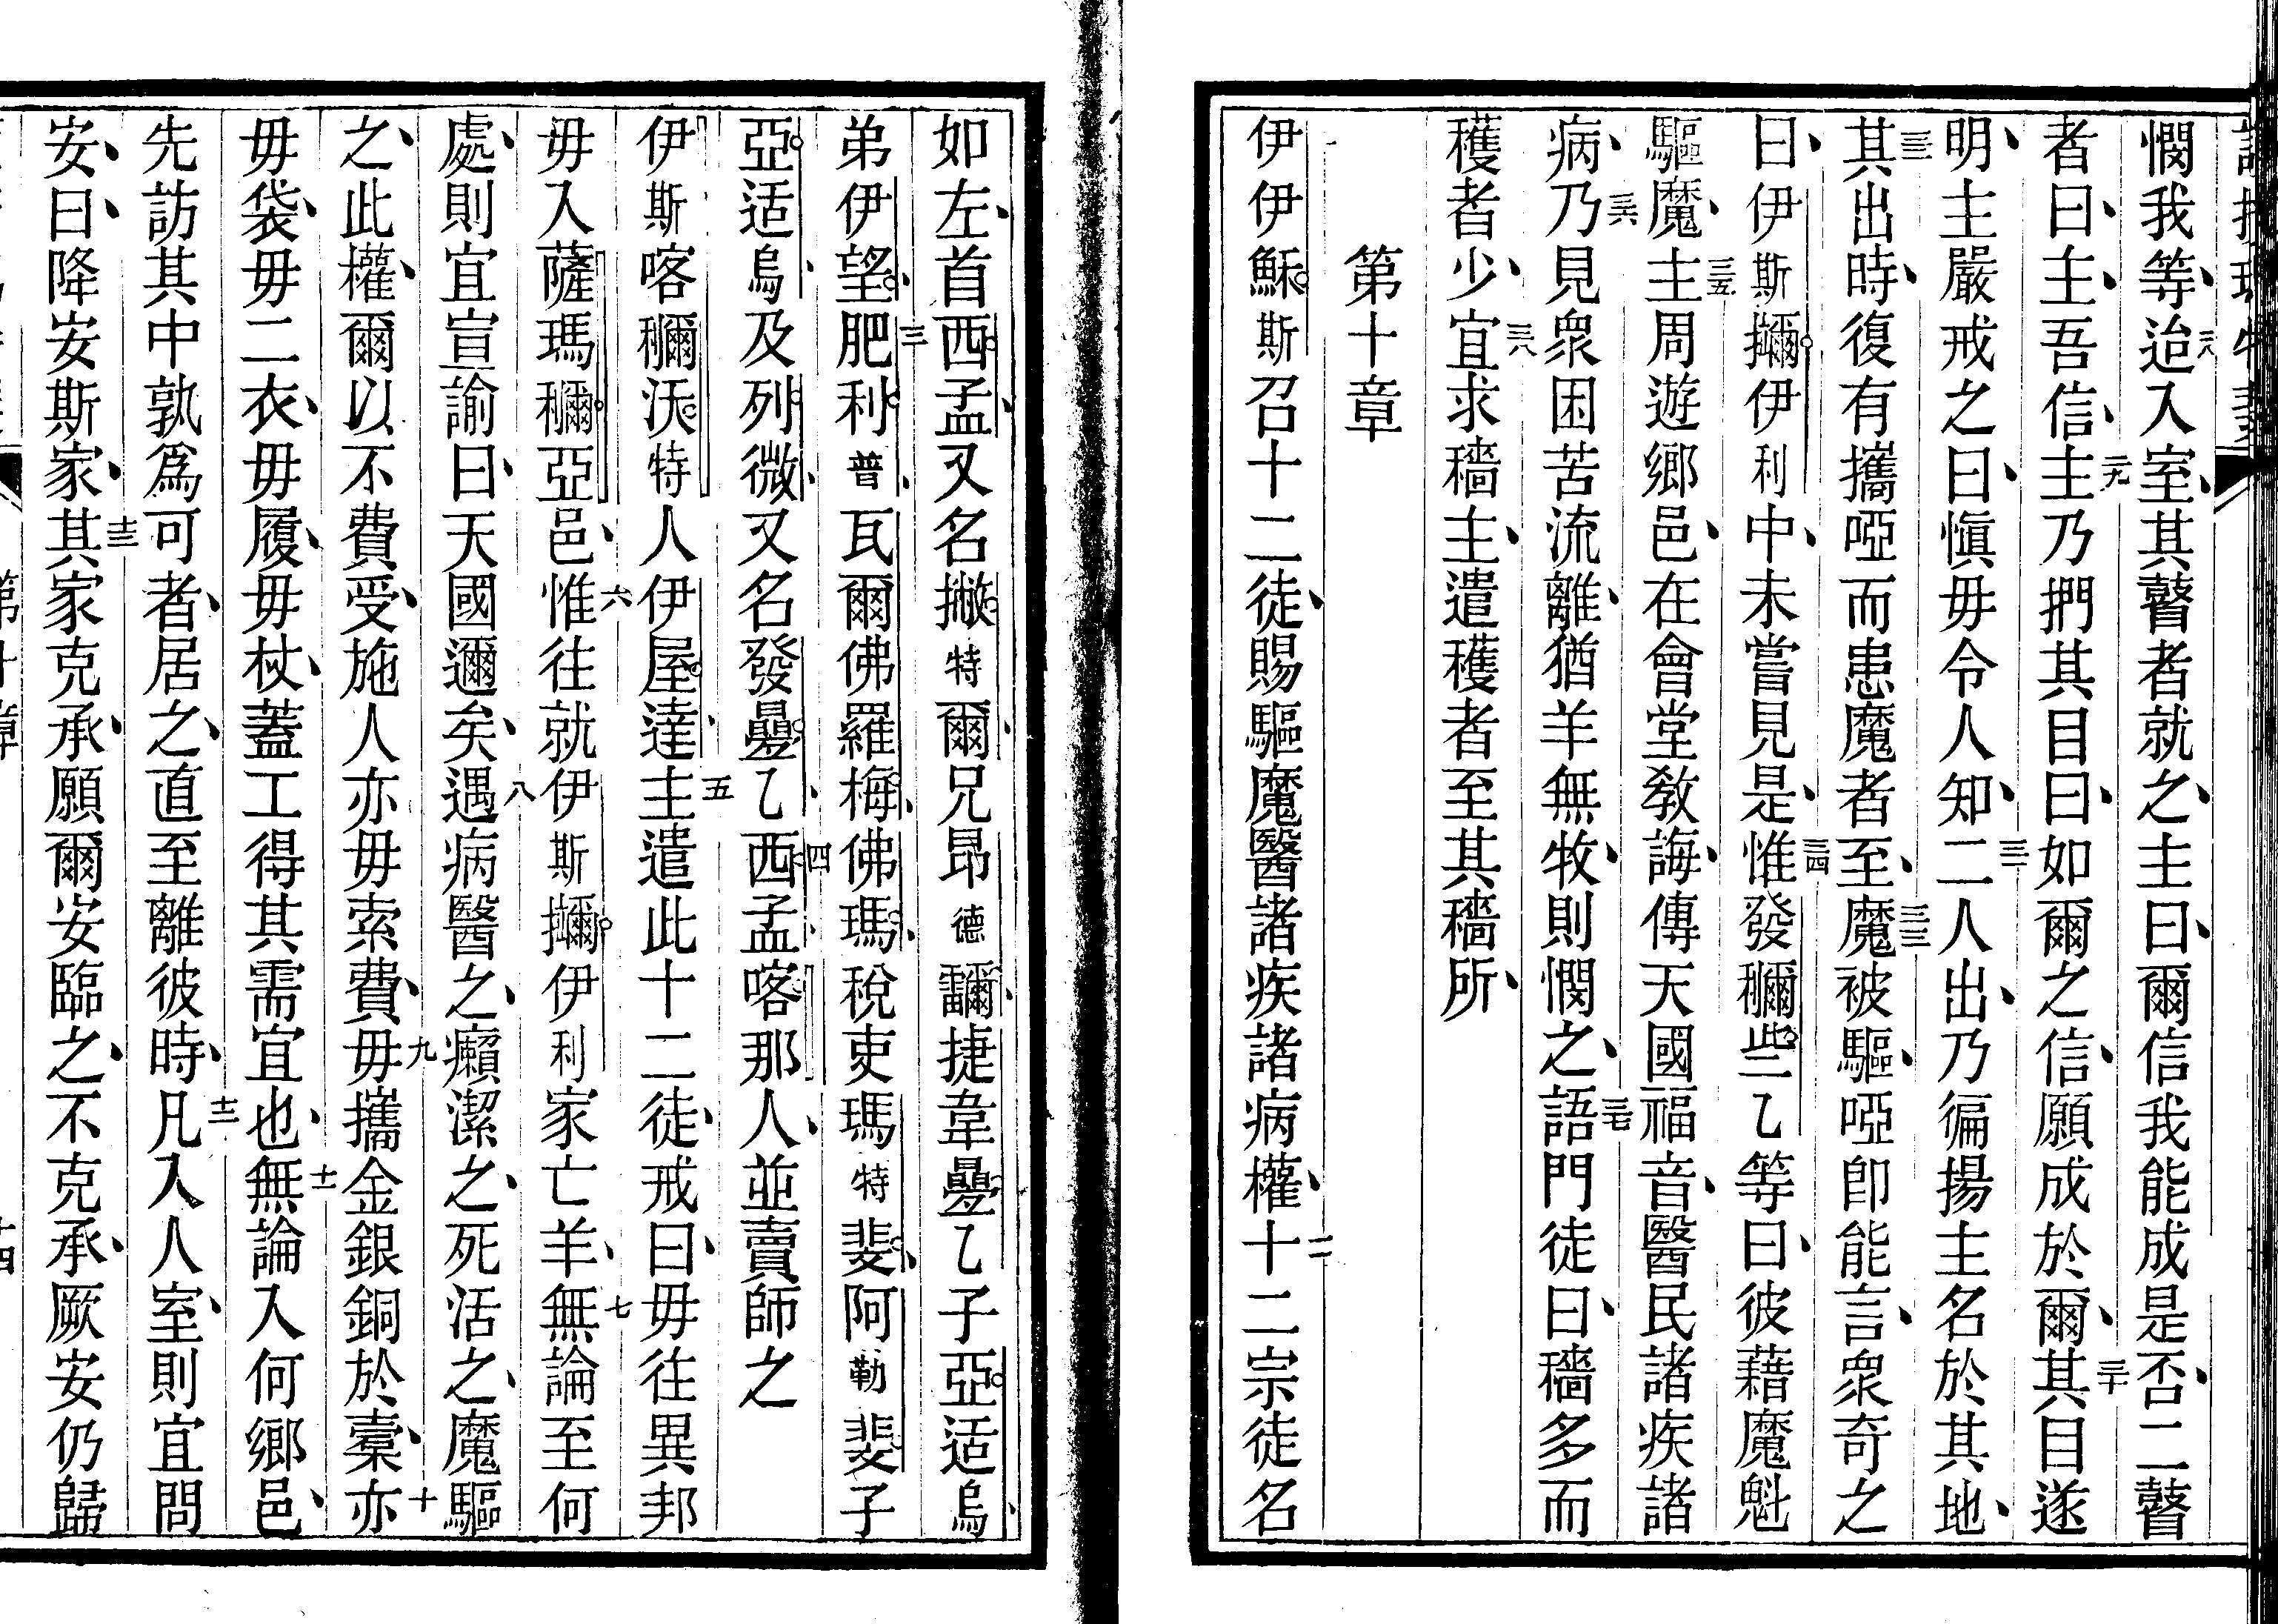 憫我等、二八迨入室、其瞽者就之、主曰、爾信我能成是否、二瞽
者曰、主、吾信、二九主乃捫其目曰、如爾之信、願成於爾、三十其目遂
明、主嚴戒之曰、愼毋令人知、三一二人出、乃徧揚主名於其地、
三二其出時、復有攜啞而患魔者至、三三魔被驅、啞卽能言、衆奇之
曰、伊斯㩶伊利中、未嘗見是、三四惟發穪些乙等曰、彼藉魔魁
驅魔、三五主周遊鄉邑、在會堂敎誨、傳天國福音、醫民諸疾諸
病、三六乃見衆困苦流離、猶羊無牧、則憫之、三七語門徒曰、穡多而
穫者少、三八宜求穡主、遣穫者至其穡所、
第十章
伊伊穌斯召十二徒、賜驅魔醫諸疾諸病權、二十二宗徒名
如左、首西孟、又名撇特爾、兄昂德、捷韋疊乙子亞适烏、
弟伊望、三肥利普、瓦爾佛羅梅、佛瑪、稅吏瑪特斐、阿勒斐子
亞适烏、及列微、又名發疊乙、四西孟喀那人、並賣師之
伊斯喀穪沃特人伊屋達、五主遣此十二徒、戒曰、毋往異邦
毋入薩瑪穪亞邑、六惟往就伊斯㩶伊利家亡羊、七無論至何
處、則宜宣諭曰、天國邇矣、八遇病醫之、癩潔之、死活之、魔驅
之、此權、爾以不費受、施人亦毋索費、九毋攜金銀銅於橐、十亦
毋袋、毋二衣、毋履、毋杖、蓋工得其需宜也、十一無論入何鄉邑、
先訪其中孰爲可者、居之、直至離彼時、十二凡入人室、則宜問
安、曰、降安斯家、十三其家克承、願爾安臨之、不克承、厥安仍歸